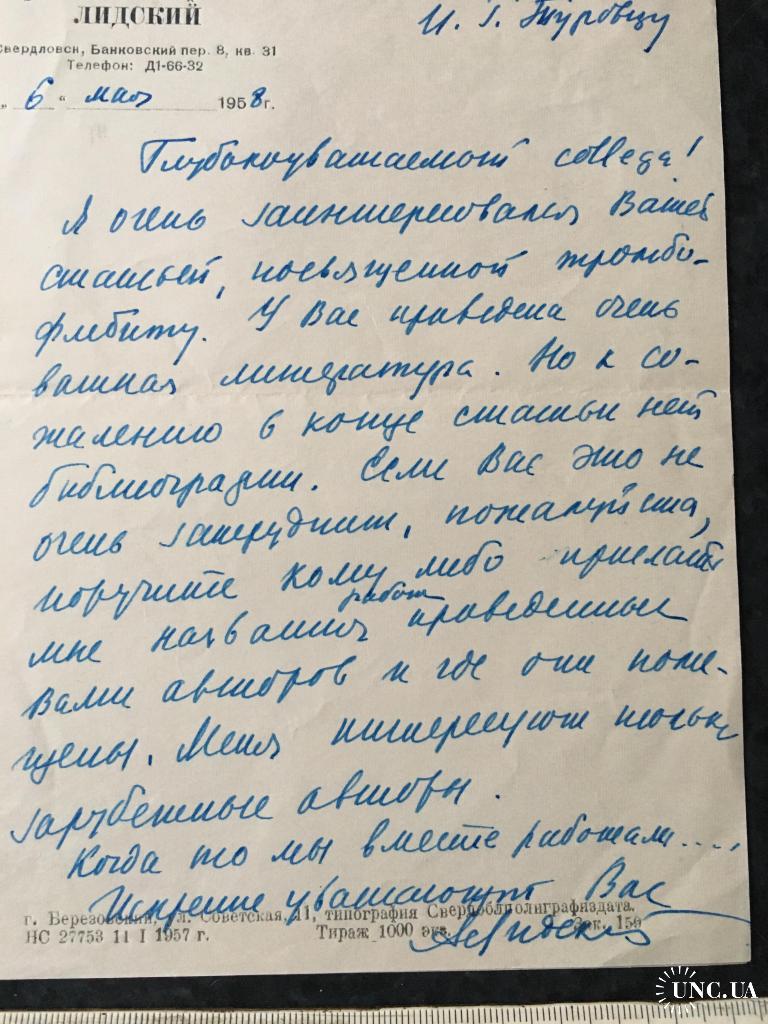 ЛИДСКИЙ
Свердловск, Банковский пер. 8, кв. 31
Телефон: Д1-66-32
„ 6 “ мая 1958 г.
И. Г. Туровцу
Глубокоуважаемый collega!
Я очень заинтересовался Вашей
статьей, посвященной тромбо-
флебиту. У Вас приведена очень
важная литература. Но к со-
жалению в конце статьи нет
библиографии. Если Вас это не
очень затруднит, пожалуйста,
поручите кому либо прислать
мне названия работ приведенных
Вами авторов и где они поме-
щены. Меня интересуют только
зарубежные авторы.
Когда то мы вместе работали....,
Искренне уважающий Вас
АЛидский
г. Березовский, ул. Советская, 11, типография Свердоблполиграфиздата.
НС 27753 11 I 1957 г. Тираж 1000 экз. Зак. 159
UNC.UA